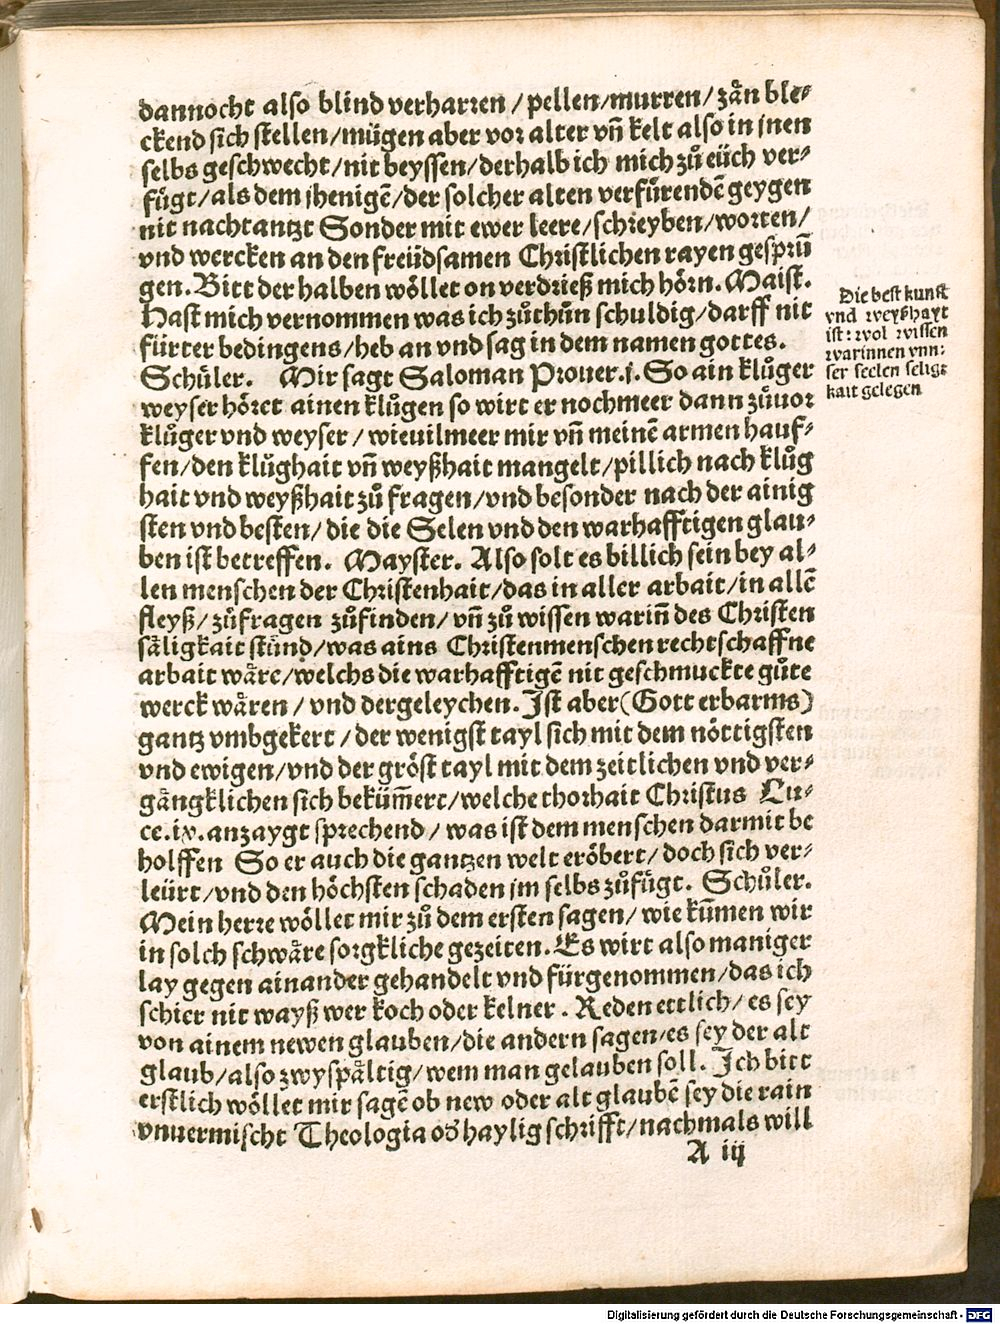 dannocht also blind verharren / pellen/murren/ zån ble⸗
ckend sich stellen/mügen aber vor alter vñ kelt also in jnen
selbs geschwecht/nit beyssen/derhalb ich mich zů eüch ver⸗
fůgt/als dem jhenigẽ/der solcher alten verfůrendẽ geygen
nit nachtantzt Sonder mit ewer leere/schreyben/worten/
vnd wercken an den freüdsamen Christlichen rayen gesprũ
gen. Bitt der halben wöllet on verdrieß mich hörn. Maist.
Hast mich vernommen was ich zůthůn schuldig/darff nit
fürter bedingens/heb an vnd sag in dem namen gottes.
Schüler. Mir sagt Saloman Prouer.j. So ain klůger
weyser höret ainen klůgen so wirt er nochmeer dann zůuor
klůger vnd weyser / wieuilmeer mir vñ meinẽ armen hauf⸗
fen/den klůghait vñ weyßhait mangelt/pillich nach klůg
hait vnd weyßhait zů fragen/vnd besonder nach der ainig
sten vnd besten/ die die Selen vnd den warhafftigen glau⸗
ben ist betreffen. Mayster. Also solt es billich sein bey al⸗
len menschen der Christenhait/das in aller arbait/in allẽ
fleyß/zůfragen zůfinden/vñ zů wissen wariñ des Christen
såligkait stünd/was ains Christenmenschen rechtschaffne
arbait wåre/welchs die warhafftigẽ nit geschmuckte gůte
werck wåren / vnd dergeleychen. Ist aber (Gott erbarms)
gantz vmbgekert / der wenigst tayl sich mit dem nöttigsten
vnd ewigen/vnd der gröst tayl mit dem zeitlichen vnd ver⸗
gångklichen sich beküm̃ert/welche thorhait Christus Lu⸗
ce.ix.anzaygt sprechend/ was ist dem menschen darmit be
holffen So er auch die gantzen welt eröbert/ doch sich ver⸗
leürt/vnd den höchsten schaden jm selbs zůfůgt. Schůler.
Mein herre wöllet mir zů dem ersten sagen/ wie kũmen wir
in solch schwåre sorgkliche gezeiten. Es wirt also maniger
lay gegen ainander gehandelt vnd fürgenommen/das ich
schier nit wayß wer koch oder kelner . Reden ettlich/ es sey
von ainem newen glauben/die andern sagen/es sey der alt
glaub/also zwyspåltig/ wem man gelauben soll. Ich bitt
erstlich wöllet mir sagẽ ob new oder alt glaubẽ sey die rain
vnuermischt Theologia od' haylig schrifft/nachmals will
A iij
Die best kunst
vnd weyßhayt
ist: wol wissen
warinnen vnn⸗
ser seelen selig⸗
kait gelegen
Digitalisierung gefördert durch die Deutsche Forschungsgemeinschaft - DFG